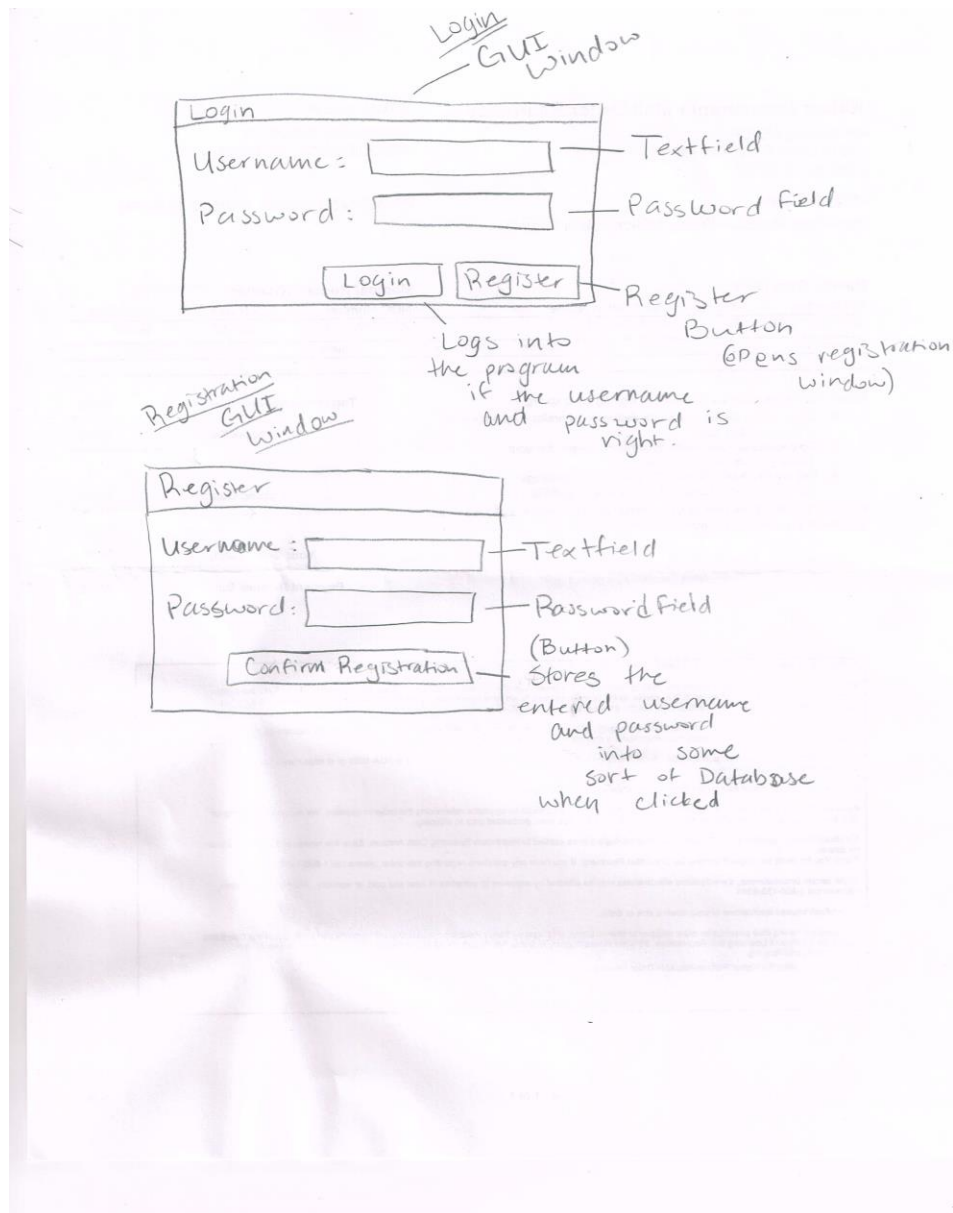 Login
GUI
Window
Login
Username :
Textfield
Password :
Password Field
Login
Register
Register
Button
(Opens registration
window)
Logs into
the program
if the username
and password is
right.
Registration
GUI
Window
Register
Username :
Textfield
Password :
Password Field
Confirm Registration
(Button)
Stores the
entered username
and password
into some
sort of Database
when clicked